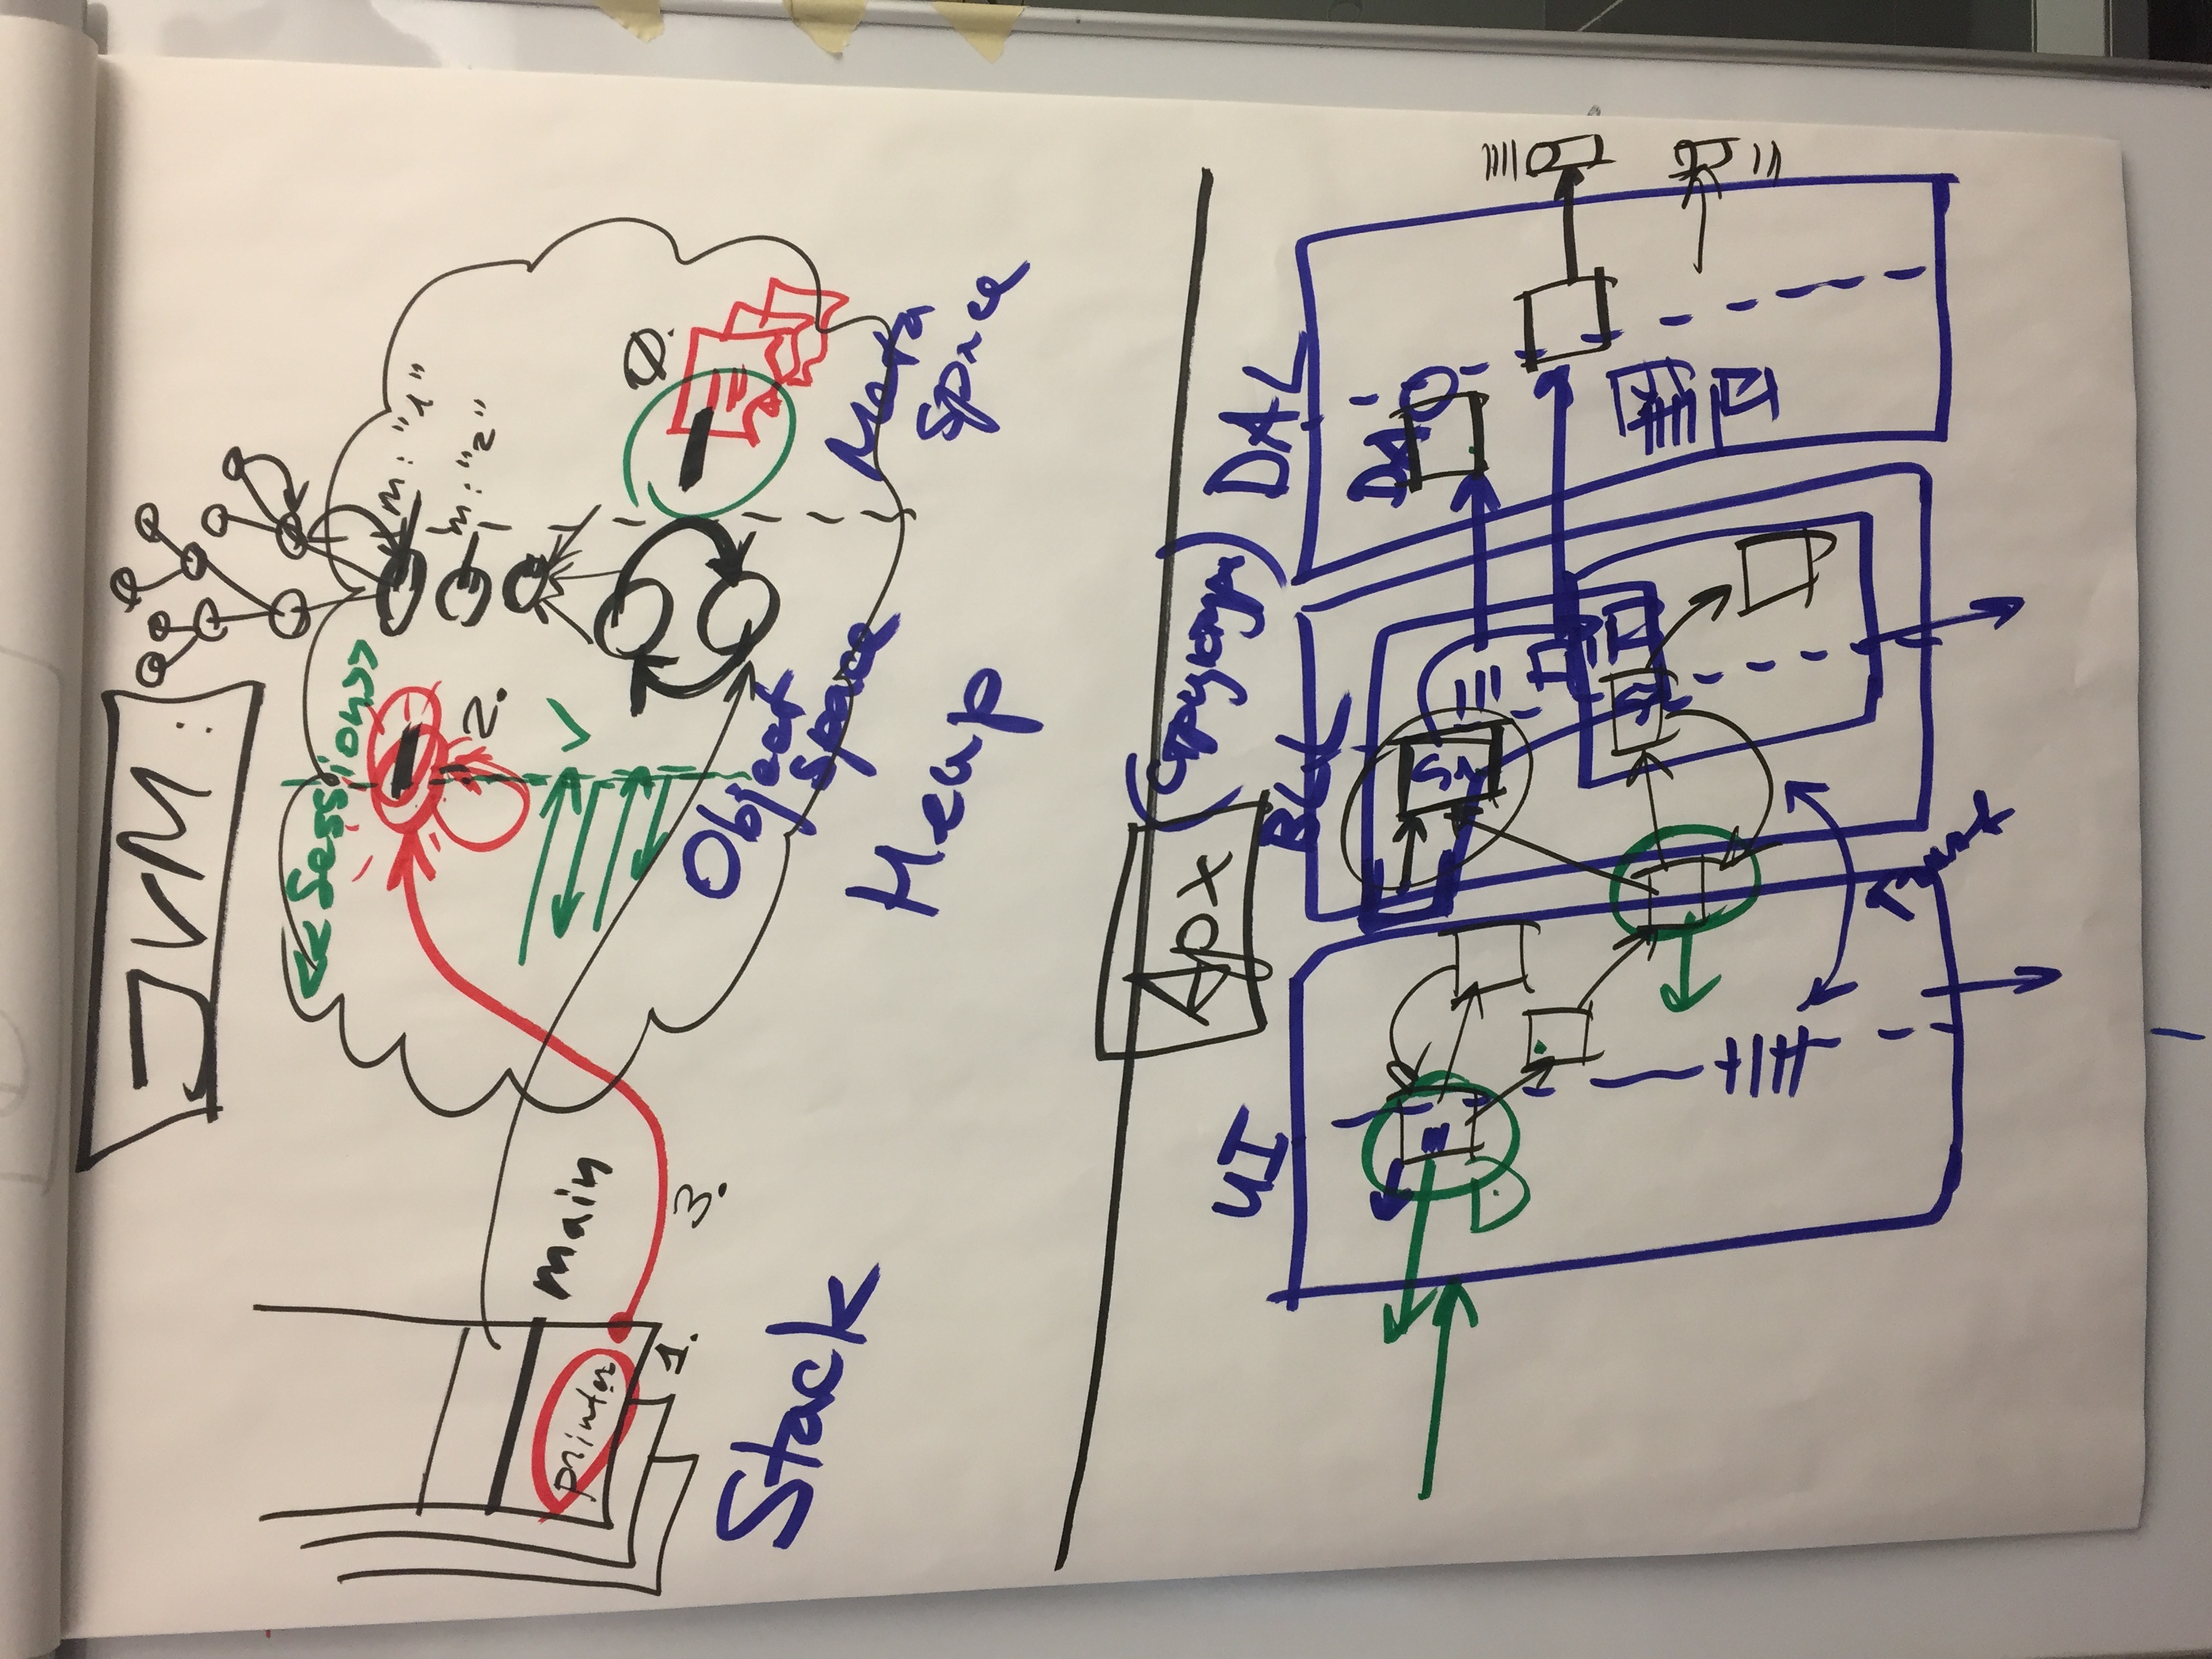 JVM:
<<Session>>
m: "1"
m: "2"
2.
main
printer
1.
3.
Ø.
Stack
Object
space
Heap
Meta
space
Арх
(структура)
UI
BLL
DAL
DAO